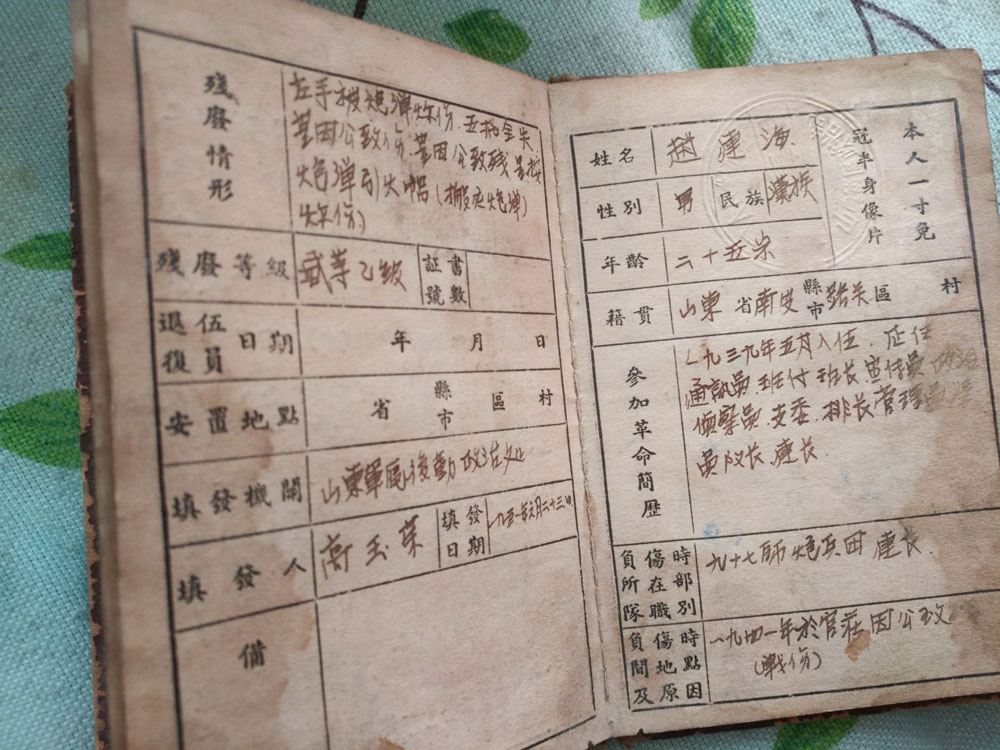 殘廢情形
左手被炮弹炸伤.五指全失
是因公致伤.是因公致残 是按
炮弹引火帽(搬运炮弹)
炸伤)
殘廢等級 貳等乙級 証書號數
退伍復員日期 年 月 日
安置地點 省 縣市 區 村
填發機關 山東軍區後勤政治处
填發人 高玉荣 填發日期 一九五一年六月二十三日
備
姓名 趙連海
性別 男 民族 漢族
年齡 二十五岁
籍貫 山東 省 南皮 縣市 區 村
本人一寸免冠半身像片
參加革命簡歷
一九三九年五月入伍.
通訊员.班付.班长.宣传员
侦察员.支委.排长管理
员.队长.連长.
負傷時所在部隊職別
九十七师炮兵团連长.
負傷時間地點及原因
一九四一年於官莊因公致
(战伤)